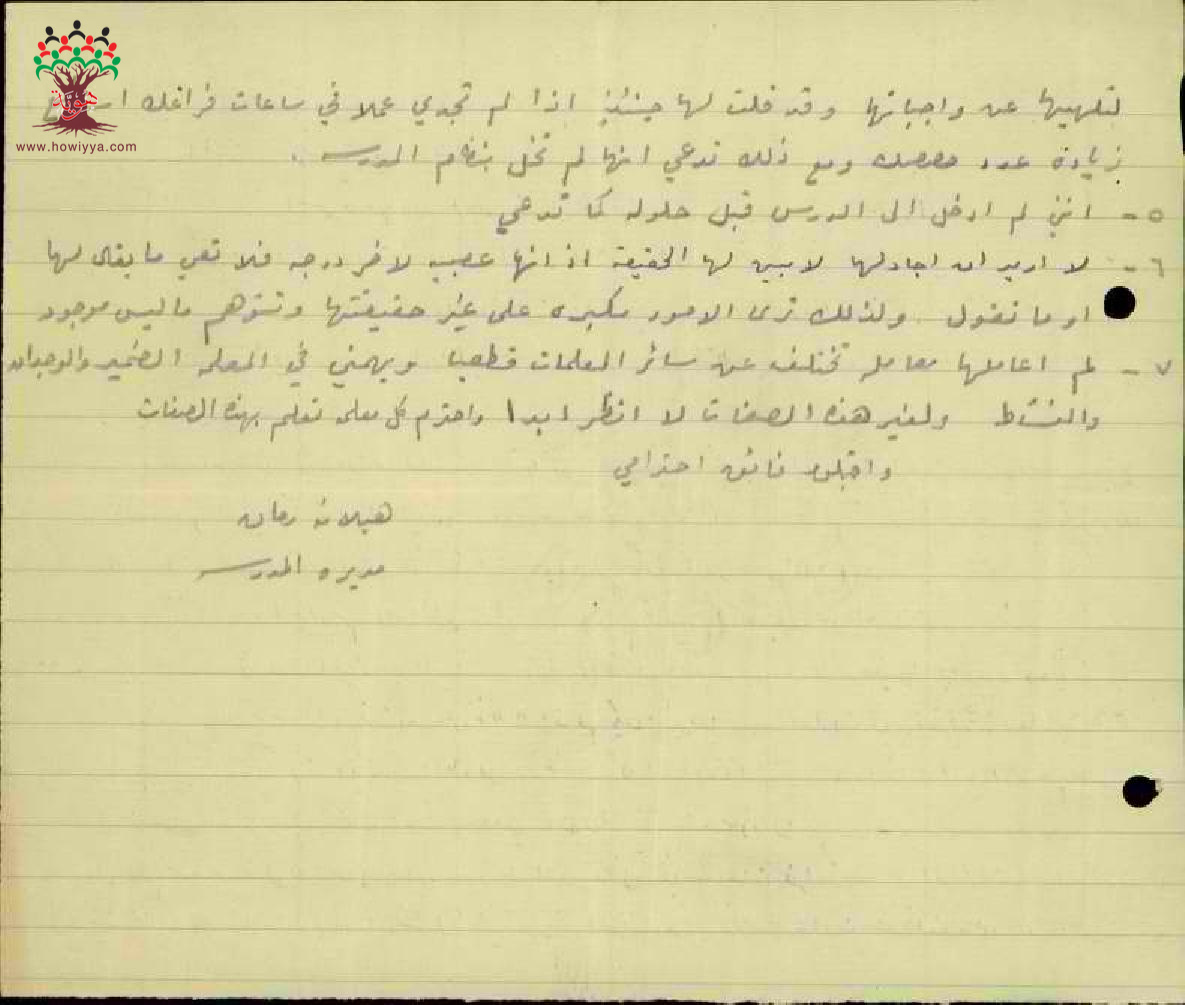 هوية
www.howiyya.com
لتلهيها عن واجباتها وقد قلت لها حينئذٍ اذا لم تجدي عملا في ساعات فراغك
زيادة عدد حصصك ومع ذلك تدعي انها لم تخل بنظام المدرسه .
٥ - انني لم ادخل الى الدرس قبل حلوله كما تدعي
٦ - لا اريد ان اجادلها لابين لها الحقيقة اذ انها عصبيه لاخر درجه فلا تعي ما يقال لها
او ما تقول ولذلك ترى الامور مكبره على غير حقيقتها وتتوهم ما ليس موجود
٧ - لم اعاملها معامله تختلف عن سائر المعلمات قطعيا ويهمني في المعلمه الضمير والوجدان
والنشاط ولغير هذه الصفات لا انظر ابدا واحترم كل معلمه تعلم بهذه الصفات
واقبلوا فائق احترامي
هيلانه
مديره المدرسه